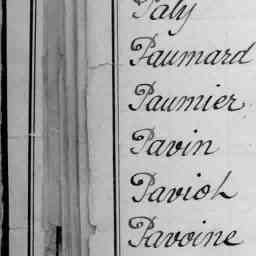 Paly
Paumard
Paumier
Pavin
Paviot
Pavoine